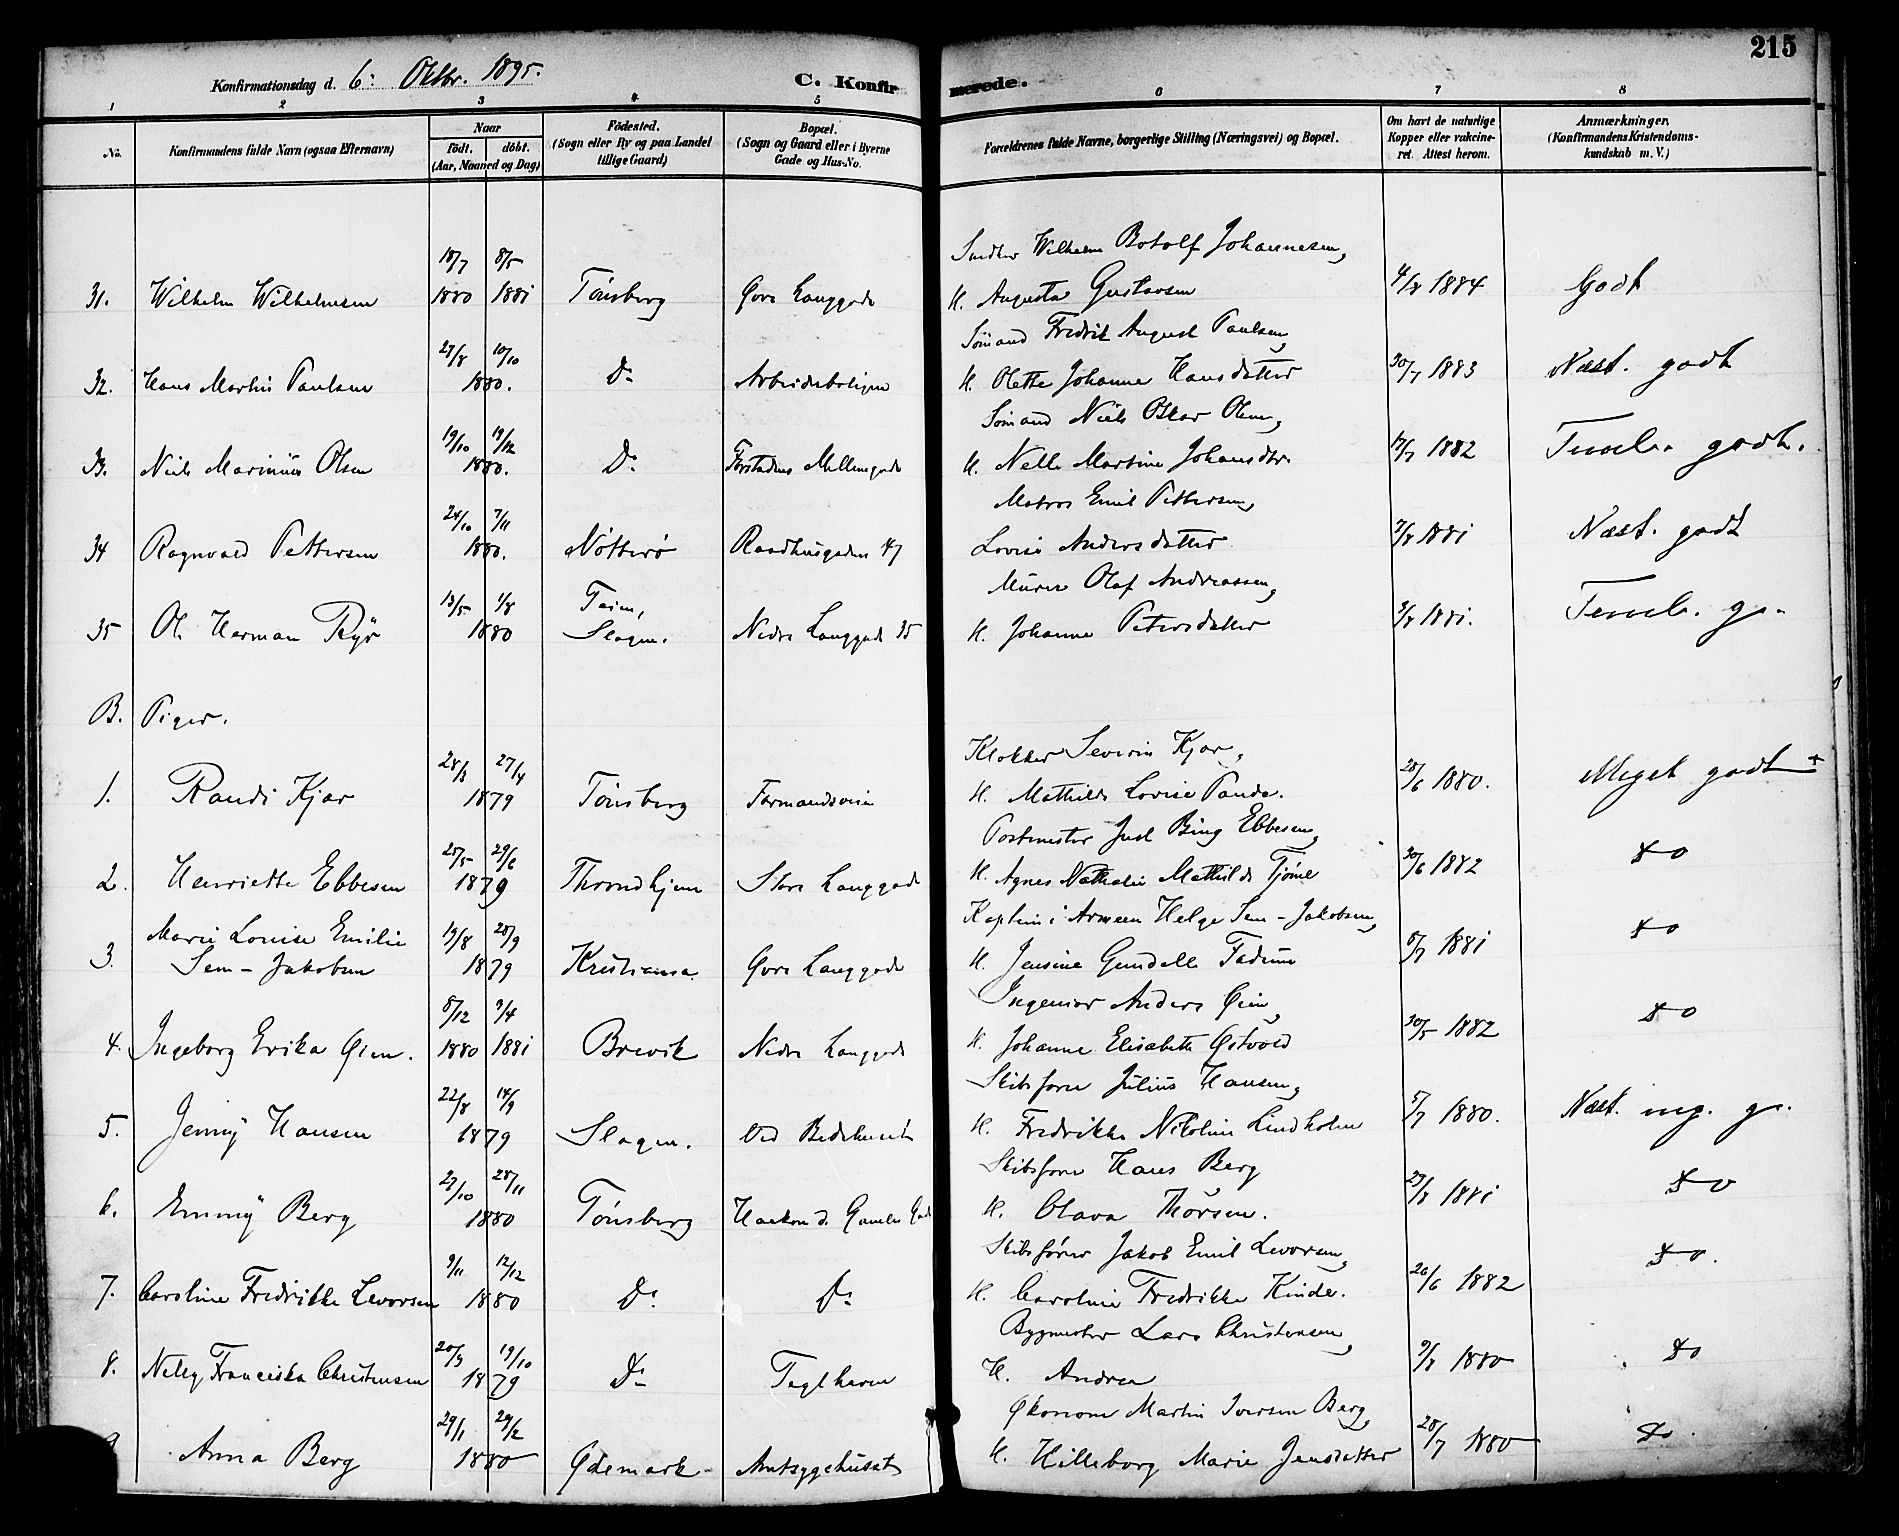 215
Konfirmationsdag d. 6: Oktbr. 1895.
C. Konfirmerede.
1 2 3 4 5 6 7 8
No.
Konfirmandens fulde Navn (ogsaa Efternavn)
Naar
født. døbt.
(Aar, Maaned og Dag)
Födested.
(Sogn eller By og paa Landet
tillige Gaard)
Bopæl.
(Sogn og Gaard eller i Byerne
Gade og Hus-No.
Forældrenes fulde Navne, borgerlige Stilling (Næringsvei) og Bopæl.
Om havt de naturlige
Kopper eller vakcine-
ret. Attest herom.
Anmærkninger.
(Konfirmandens Kristendoms-
kundskab m. V.)
18/7 8/5 Wilhelm Botolf Johannesen,
31. Wilhelm Wilhelmsen 1880 1881 Tönsberg Øvre Langgade H. Augusta Gustavsen 4/8 1884 Godt
27/8 10/10 Sömand Fredrik August Paulsen,
32. Hans Martin Paulsen 1880. Do Arbeiderboligen H. Olette Johanne Hansdatter 30/7 1883 Næst. godt
19/10 19/12 Sömand Niels Oskar Olsen,
33. Niels Marinius Olsen 1880. Do Forstadens Mellemgade H. Nelle Martine Johansdtr. 17/7 1882 Temel. godt.
24/10 7/11 Matros Emil Pettersen,
34 Ragnvald Pettersen 1880. Nötterö Raadhusgaden 47 Lovise Andersdatter 7/8 1881 Næst. godt
13/5 1/8 Murer Olaf Andreassen,
35 Ole Herman Ryr 1880 Slagen. Nedre Langgade 35 H. Johanne Petersdatter 3/8 1881. Temel. go.
B. Piger.
28/3 27/4 Klokker Severin Kjær,
1. Randi Kjær 1879 Tönsberg Farmandsveien H. Mathilde Lovise Paude. 28/6 1880. Meget godt +
25/5 29/6 Postmester Just Bing Ebbesen,
2. Henriette Ebbesen 1879 Throndhjem Store Langgade H. Agnes Nathalie Mathilde Tjöme 30/6 1882 do
Marie Louise Emilie 19/8 28/9 Kaptein i Armeen Helge Sem-Jakobsen,
3. Sem-Jakobsen 1879 Kristiania Øvre Langgade H. Jensine Gundelle Fadum 8/7 1881 do
8/12 9/4 Ingeniør Anders Øien,
4. Ingeborg Erika Øien. 1880 1881 Brevik Nedre Langgade H. Johanne Elisabeth Østvold 30/5 1882 do
22/8 14/9 Skibsfører Julius Hansen,
5. Jenny Hansen 1879 Slagen. Ved Bedehuset H. Fredrikke Nikoline Lindholm 5/7 1880. Næst. meg. go.
27/10 28/11 Skibsfører Hans Berg
6. Emmy Berg 1880 Tönsberg Haakon d. Gamles Gade H. Olava Thorsen. 23/8 1881 do
9/11 12/12 Skibsförer Jakob Emil Levorsen,
7. Caroline Fredrikke Levorsen 1880 Do Do H. Caroline Fredrikke Kinde. 26/6 1882 do.
20/9 19/10 Bygmester Lars Christensen,
8. Nelly Franciska Christensen 1879 Do Teglhaven H. Andrea 9/8 1880 do
29/1 29/2 Økonom Martin Iversen Berg,
Anna Berg 1880 Ødemark Amtsygehuset H. Hilleborg Marie Jensdatter 28/7 1880 do.